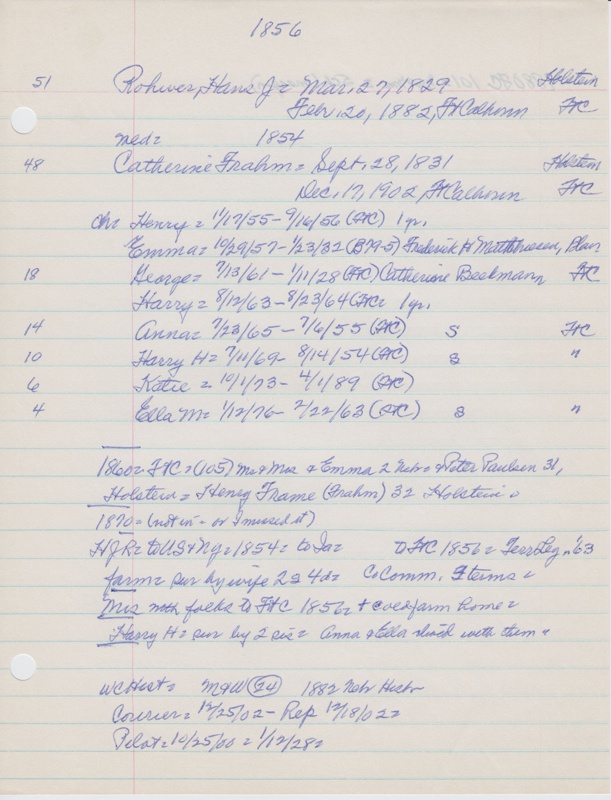 1856
51 Rohwer, Hans J = Mar. 27, 1829 Holstein
Febr. 20, 1882, Ft Calhoun FtC
med = 1854
48 Catherine Frahm = Sept. 28, 1831 Holstein
Dec. 17, 1902, Ft Calhoun FtC
ch = Henry = 11/17/55 – 9/16/56 (FtC) 1 yr.
Emma = 10/29/57 – 1/23/32 (B79-5) Frederick H Matthiessen, Blair
18 George = 7/13/61 – 1/11/28 (FtC) Catherine Beekmann FtC
Harry = 8/12/63 – 8/23/64 (FtC = 1 yr.
14 Anna = 7/23/65 – 7/6/55 (FtC) S FtC
10 Harry H = 7/11/69 – 8/14/54 (FtC) S "
6 Katie = 10/1/73 – 4/1/89 (FtC)
4 Ella M = 1/12/76 – 2/22/63 (FtC) S "
1860 = FtC = (105) Mr & Mrs & Emma 2 Nebr = & Peter Paulsen 31,
Holstein = Henry Frame (Frahm) 32 Holstein =
1870 = (not in - or I missed it)
HJR = to US & = 1854 = to Ia = to FtC 1856 = Terr Leg in '63
farm = sur by wife 2s 4d = Co Comm. terms =
Mrs folks to FtC 1856 = farm home =
Harry H = sur by 2 sis = Anna & Ella lived with them =
WC Hist = M&W (24) 1882 Nebr Hist =
Courier = 12/25/02 – Rep 12/18/02 =
Pilot = 10/25/00 = 1/12/28 =